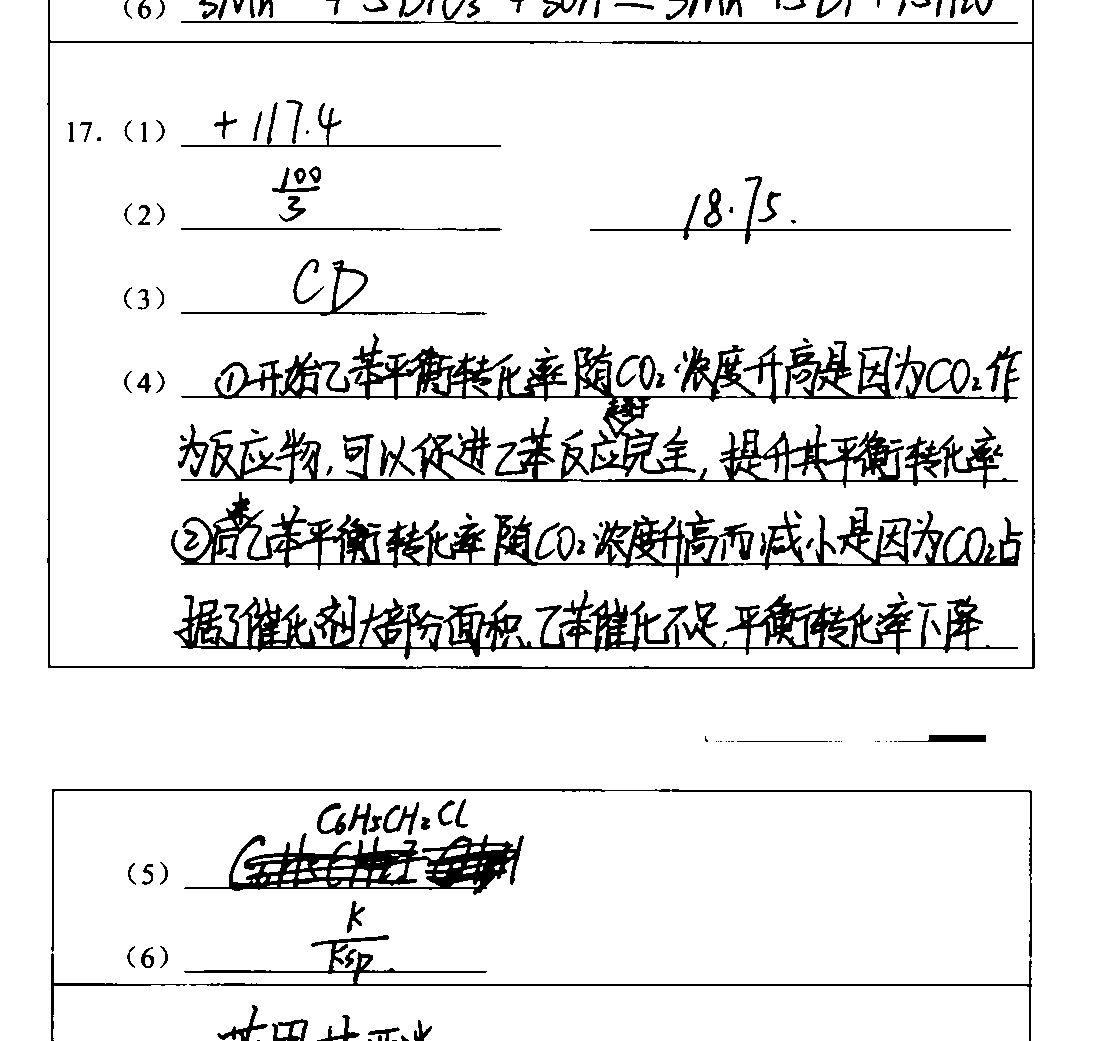 (6)
17. (1) +117.4
(2) 100/3 18.75.
(3) CD
(4) ①开始乙苯平衡转化率随CO₂浓度升高是因为CO₂作
为反应物,可以促进乙苯反应完全,提升其平衡转化率.
②末乙苯平衡转化率随CO₂浓度升高而减小是因为CO₂占
据了催化剂大部分面积,乙苯催化不足,平衡转化率下降.
(5) C₆H₅CH₂Cl
(6) K/Ksp.